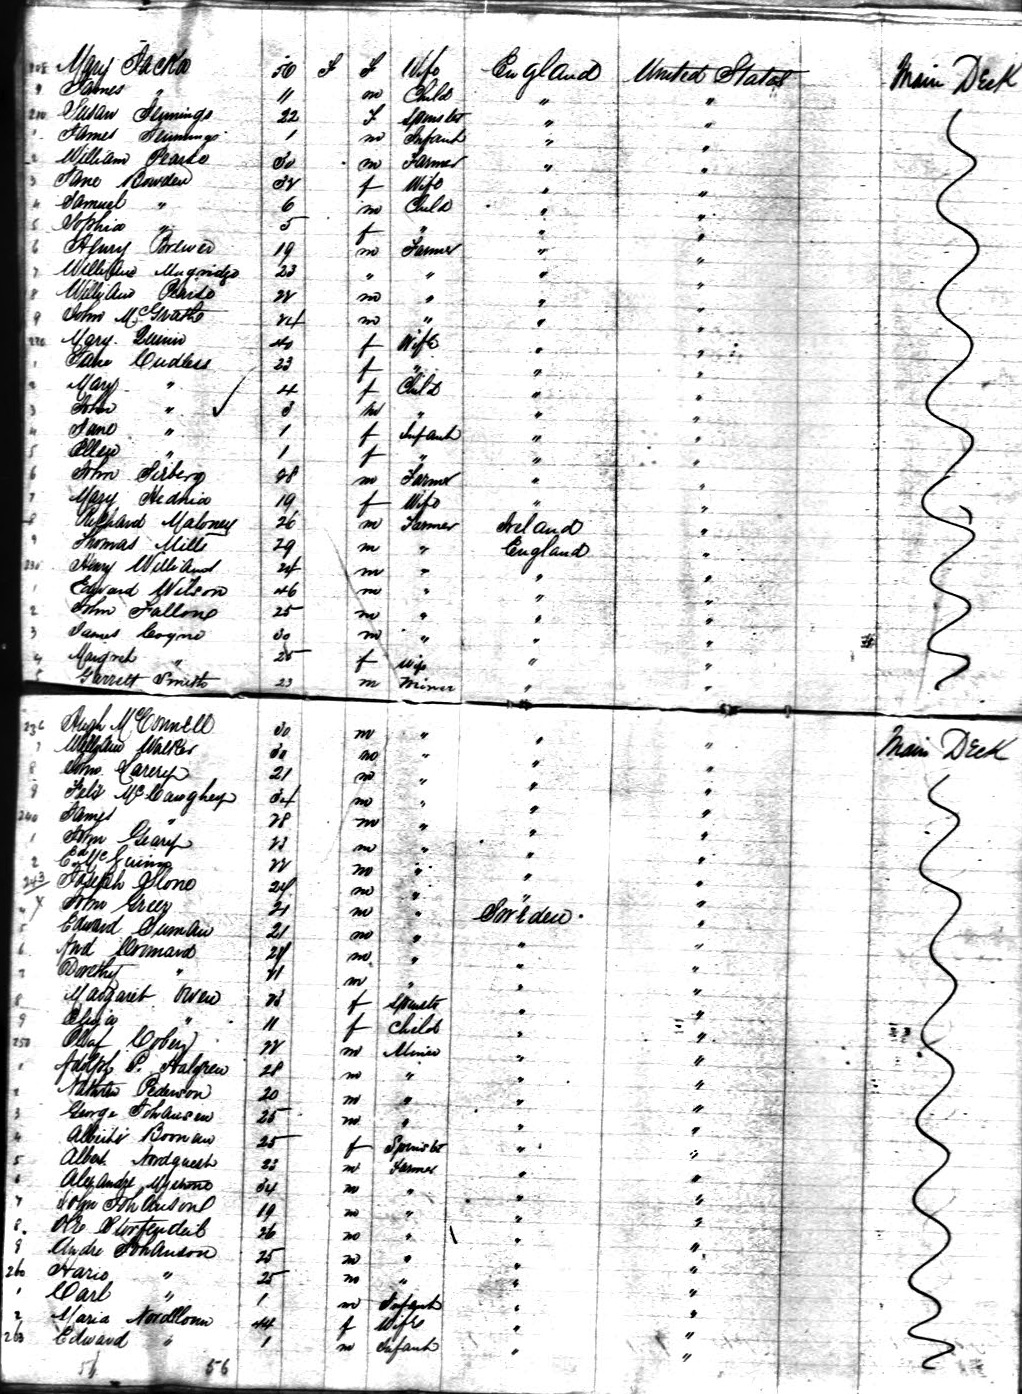 208 Mary Jacka 50 F F Wife England United States Main Deck
9 James " 11 m Child " "
210 Susan Flemings 22 F Spinster " "
1 James Flemings 1 m Infant " "
2 William Pearse 30 m Farmer " "
3 Jane Bowden 32 f Wife " "
4 Samuel " 6 m Child " "
5 Sophia " 5 f " " "
6 Henry Brewer 19 m Farmer " "
7 William Mugridge 23 " " " "
8 William Pearse 22 m " " "
9 John McGrath 24 m " " "
220 Mary Quinn 40 f Wife " "
1 Jane Cudless 23 f " " "
2 Mary " 4 f Child " "
3 John " 3 m " " "
4 Jane " 1 f Infant " "
5 Ellen " 1 f " " "
6 John 28 m Farmer " "
7 Mary 19 f Wife " "
8 Richard Maloney 26 m Farmer Ireland "
9 Thomas Mills 29 m " England "
230 Henry Williams 24 m " " "
1 Edward Wilson 46 m " " "
2 John Fallone 25 m " " "
3 James Coyne 30 m " " "
4 Margret " 25 f Wife " "
5 Garrett Smith 23 m Miner " "
236 Hugh McConnell 30 m " " " Main Deck
7 William Walker 30 m " " "
8 Jno. 21 m " " "
9 Felix McCaughey 34 m " " "
240 James " 28 m " " "
1 John Geary 23 m " " "
2 22 m " " "
243 Joseph 24 m " " "
4 John Green 21 m " Sweden "
5 Edward 21 m " " "
6 And 24 m " " "
7 Dorothy " 21 m " " "
8 Margaret Owen 23 f Spinster " "
9 Eliza " 11 f Child " "
250 Olaf 22 m Miner " "
1 Adolph P. Halgren 28 m " " "
2 Pederson 20 m " " "
3 George Johansen 25 m " " "
4 25 f Spinster " "
5 Albert Nordquest 23 m Farmer " "
6 Alexander 34 m " " "
7 John Johansone 19 m " " "
8 Ole 26 m " " "
9 Andre Johanson 25 m " " "
260 " 25 m " " "
1 Carl " 1 m Infant " "
2 Maria Nordlom 44 f Wife " "
263 Edward " 1 m Infant " "
56 56